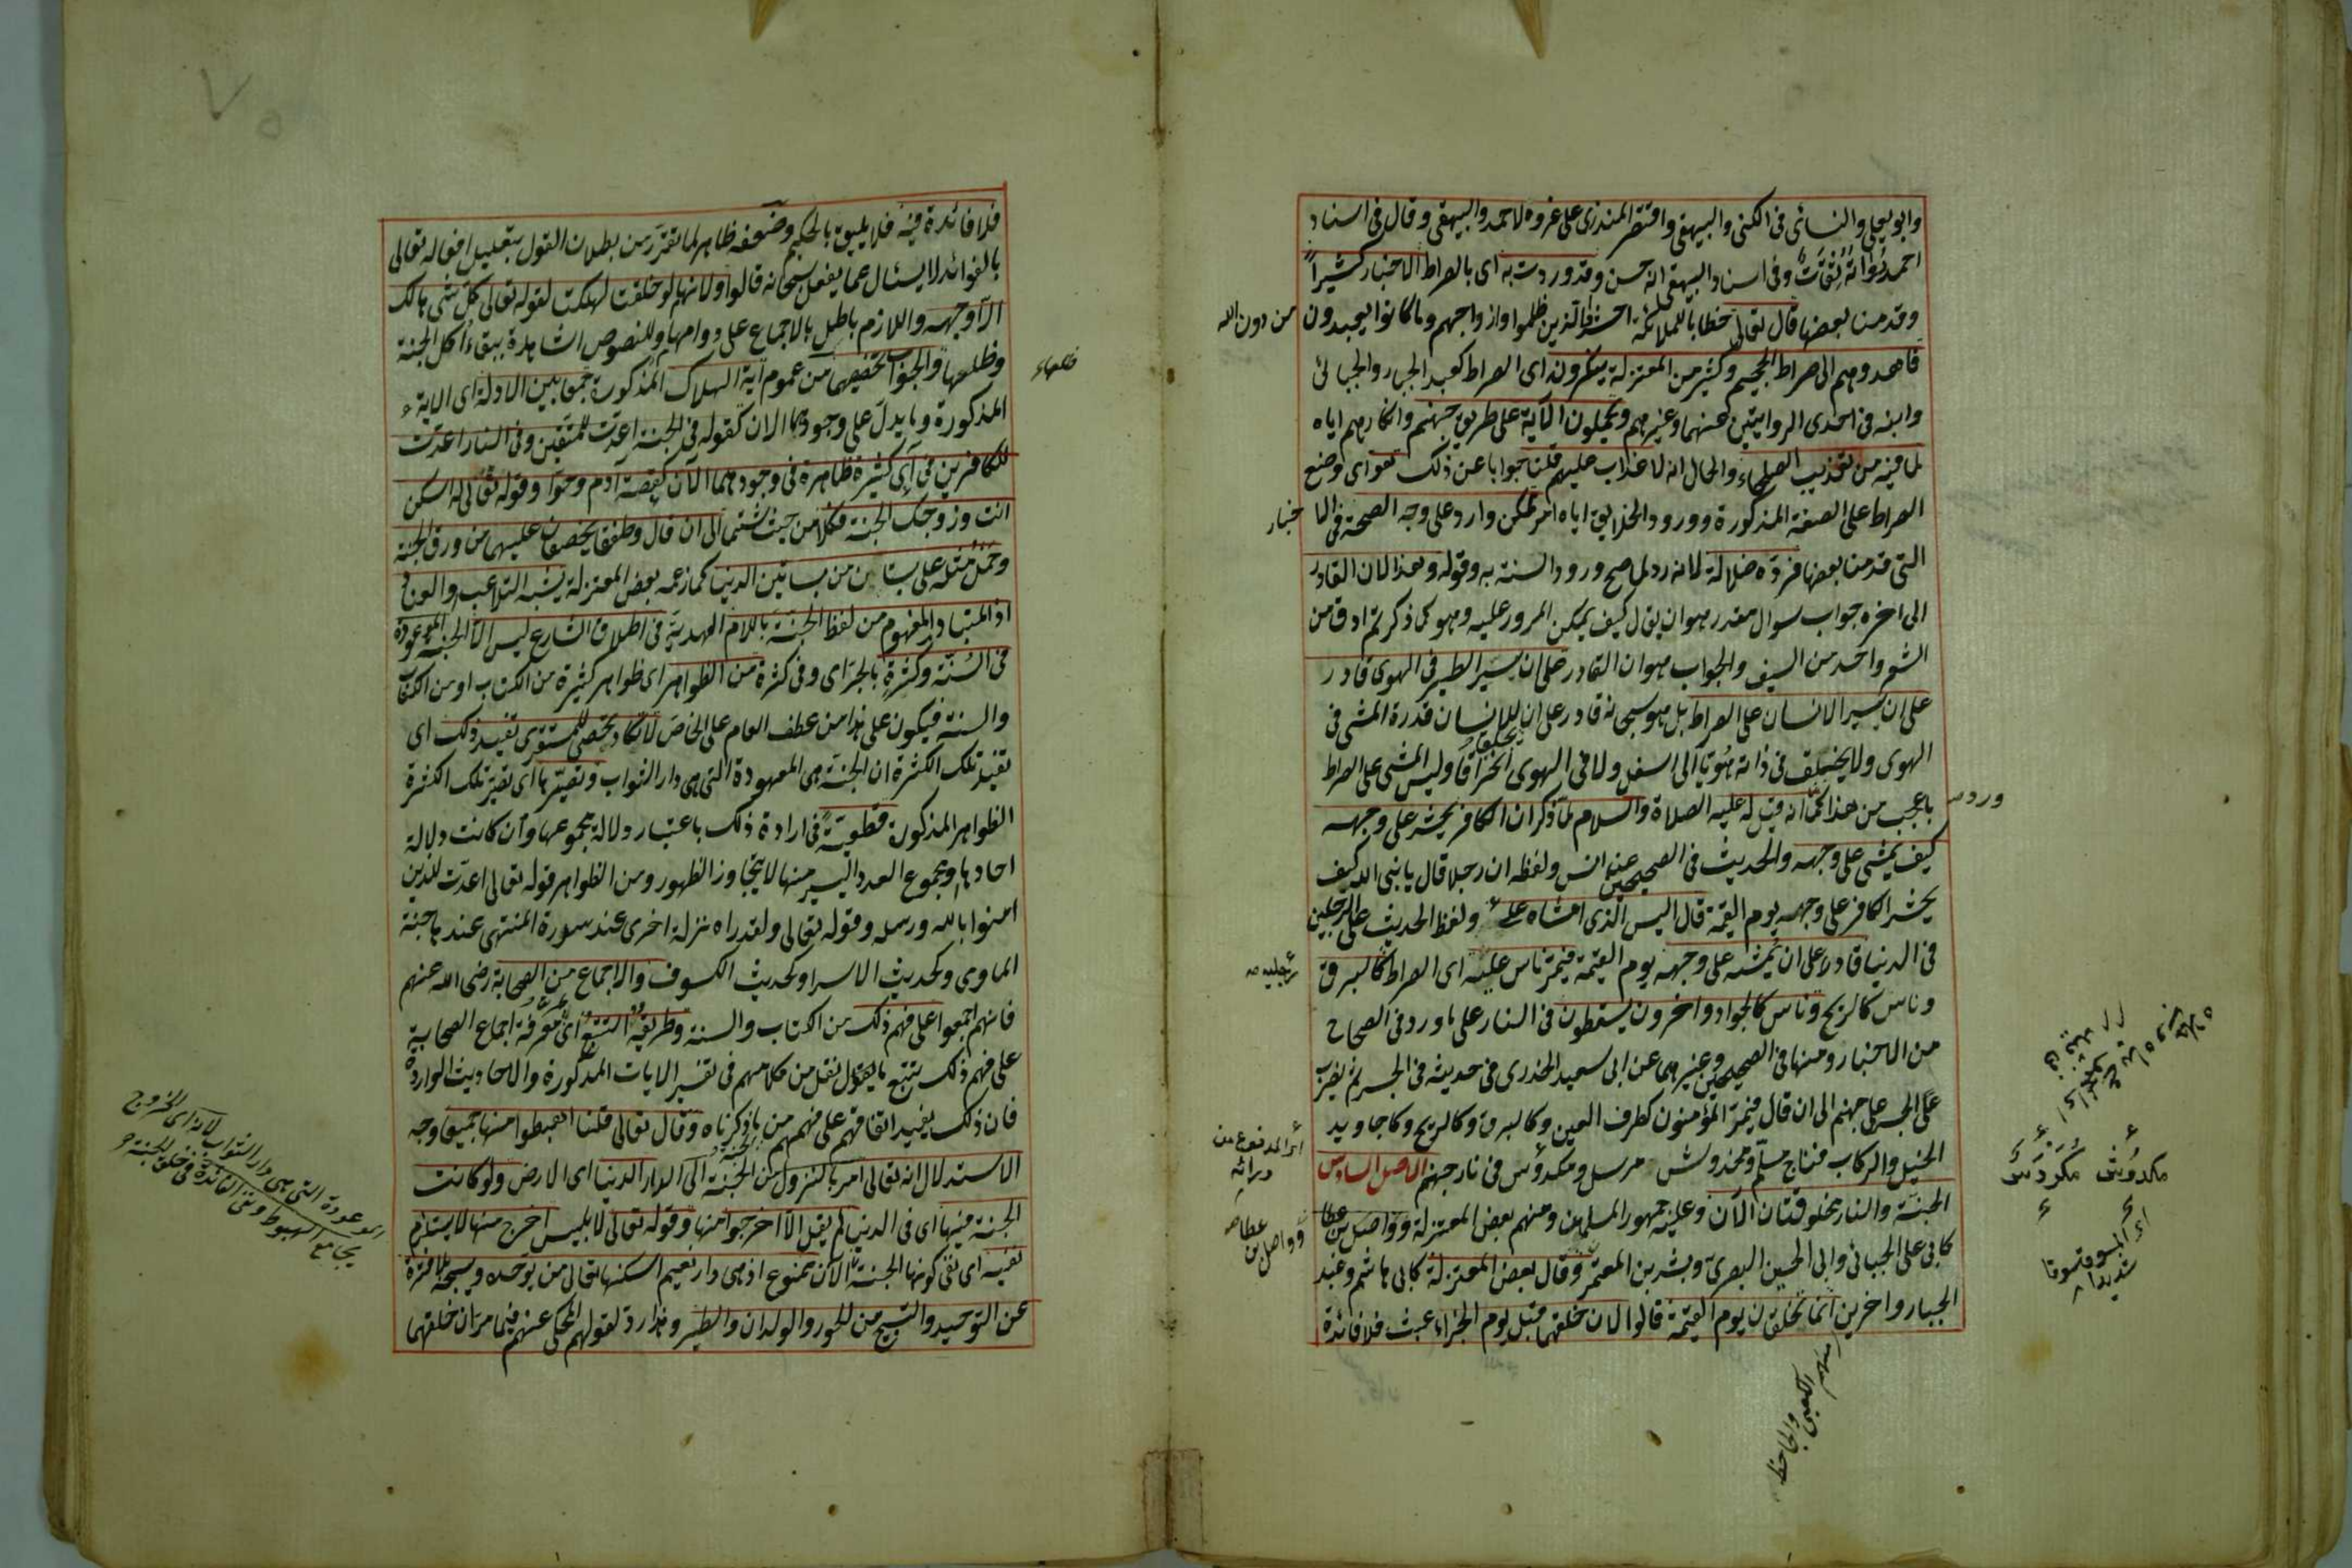 وابو يعلى والنسائى فى الكنى والبيهقى واقتصر المنذرى على عزوه لاحمد والبيهقى وقال فى اسناد
احمد رُوَاتُهُ ثِقَاتٌ وفى اسناد البيهقى انه حسن وقد وردت به اى بالصراط الاخبار كثيراً
وقدمنا بعضها قال تعالى خطابا للملائكة احشروا الذين ظلموا وازواجهم وما كانوا يعبدون من دون الله
فاهدوهم الى صراط الجحيم وكثير من المعتزلة ينكرونه اى الصراط كعبد الجبار والجبائى
وابنه فى احدى الروايتين عنهما وغيرهم ويحملون الآية على طريق جهنم وانكارهم اياه
لما فيه من تعذيب الصلحاء والحال انه لا عذاب عليهم قلنا جوابا عن ذلك هو اى وضع
الصراط على الصفة المذكورة وورود الخلايق اياه امر ممكن وارد على وجه الصحة فى الا خبار
التى قدمنا بعضها فردّه ضلالة لانه رد لما صح ورود السنة به وقوله وهذا لان القادر
الى اخره جواب سوال مقدر هو ان يقال كيف يمكن المرور عليه وهو كما ذكرتم ادق من
الشعر واحد من السيف والجواب هو ان القادر على ان يسير الطير فى الهوى قادر
على ان يسير الانسان على الصراط بل هو سبحانه قادر على ان يخلق للانسان قدرة المشى فى
الهوى ولا يخلق فى ذاته هُوِيّا الى اسفل ولا فى الهوى انخراقا وليس المشى على الصراط
باعجب من هذا كما انه قيل له عليه الصلاة والسلام لما ذكر ان الكافر يحشر على وجهه ورد
كيف يمشى على وجهه والحديث فى الصحيحين عن انس ولفظه ان رجلا قال يا نبى الله كيف
يحشر الكافر على وجهه يوم القيمة قال اليس الذى امشاه على ولفظ الحديث على الرجلين
فى الدنيا قادرا على ان يمشيه على وجهه يوم القيمة فيمر ناس عليه اى الصراط كالبرق
رجليه
وناس كالريح وناس كالجواد واخرون يسقطون فى النار على ما ورد فى الصحاح
من الاخبار ومنها فى الصحيحين وغيرهما عن ابى سعيد الخدرى فى حديثه فى الجسر ثم يضرب
على الجسر على جهنم الى ان قال فيمر المؤمنون كطرف العين وكالبرق وكالريح وكاجاويد
الخيل والركاب فناج مسلّم ومخدوش مرسل ومكدوس فى نار جهنم الاصل السادس
اى المدفوع من ورائه
مكدوش مكردس
اى المسوق سوقا شديدا
الجنة والنار مخلوقتان الآن وعليه جمهور المسلمين ومنهم بعض المعتزلة وواصل بن عطا
وواصل بن عطا
كابى على الجبائى وابى الحسين البصرى وبشر بن المعتمر وقال بعض المعتزلة كابى هاشم وعبد
الجبار واخرين انما تخلقان يوم القيمة قالوا لان خلقهما قبل يوم الجزاء عبث فلا فائدة
فلا فائدة فيه فلا يليق بالحكيم وضعفه ظاهر لما تقرر من بطلان القول بتعليل افعاله تعالى
بالفوائد لا يسئال عما يفعل سبحانه قالوا ولانهما لو خلقتا لهلكتا لقوله تعالى كل شى هالك
الا وجهه واللازم باطل بالاجماع على دوامهما وللنصوص الشاهدة ببقاء اكل الجنة
وظلها والجواب تخصيصهما من عموم آية الهلاك المذكورة جمعا بين الادلة اى الاية
المذكورة وما يدل على وجودهما الان كقوله فى الجنة اعدت للمتقين وفى النار اعدت
للكافرين فى آى كثيرة ظاهرة فى وجودهما الآن كقصة آدم وحوا وقوله تعالى له اسكن
انت وزوجك الجنة فكلا من حيث شئتما الى ان قال وطفقا يخصفان عليهما من ورق الجنة
وحمل مثله على بستان من بساتين الدنيا كما زعمه بعض المعتزلة يشبه التلاعب والعناد
اذ المتبادر المفهوم من لفظ الجنة باللام العهدية فى اطلاق الشارع ليس الا الجنة الموعودة
فى السنة وكثرة بالجر اى وفى كثرة من الظواهر اى ظواهر كثيرة من الكتاب او من الكتاب
والسنة فيكون على هذا من عطف العام على الخاص لا تكاد تحصى للمستقرى تفيد ذلك اى
تفيد تلك الكثرة ان الجنة هى المعهودة التى هى دار الثواب وتصيرها اى تصير تلك الكثرة
الظواهر المذكورة قطعية فى ارادة ذلك باعتبار دلالة مجموعها وان كانت دلالة
احادها ومجموع العدد اليسير منها لا يتجاوز الظهور ومن الظواهر قوله تعالى اعدت للذين
امنوا بالله ورسله وقوله تعالى ولقد راه نزلة اخرى عند سدرة المنتهى عندها جنة
الماوى وكحديث الاسرا وكحديث الكسوف والاجماع من الصحابة رضى الله عنهم
فانهم اجمعوا على فهم ذلك من الكتاب والسنة وطريقه التتبع اى معرفة اجماع الصحابة
على فهم ذلك بتتبع ما نقل من كلامهم فى تفسير الايات المذكورة والاحاديث الواردة
فان ذلك يفيد اتفاقهم على فهمهم من ما ذكرناه وقال تعالى قلنا اهبطوا منها جميعا وجه
الاستدلال انه تعالى امر بالنزول من الجنة الى الدار الدنيا اى الارض ولو كانت
الجنة فيها اى فى الدنيا لم يقل الا اخرجوا منها وقوله تعالى لابليس اخرج منها لا يستلزم
نفيه اى نفى كونها الجنة الآن ممنوع اذ هى دار نعيم اسكنها تعالى من يوحده ويسبحه بلا فترة
عن التوحيد والتسبيح من الحور والولدان والطير وهذا رد لقولهم المحكى عنهم فيما مر ان خلقهما
الموعودة التى هى دار الثواب لانه اى الخروج
يجامع الهبوط ونفى الفائدة فى خلق الجنة
ومنهم الكعبى والجاحظ